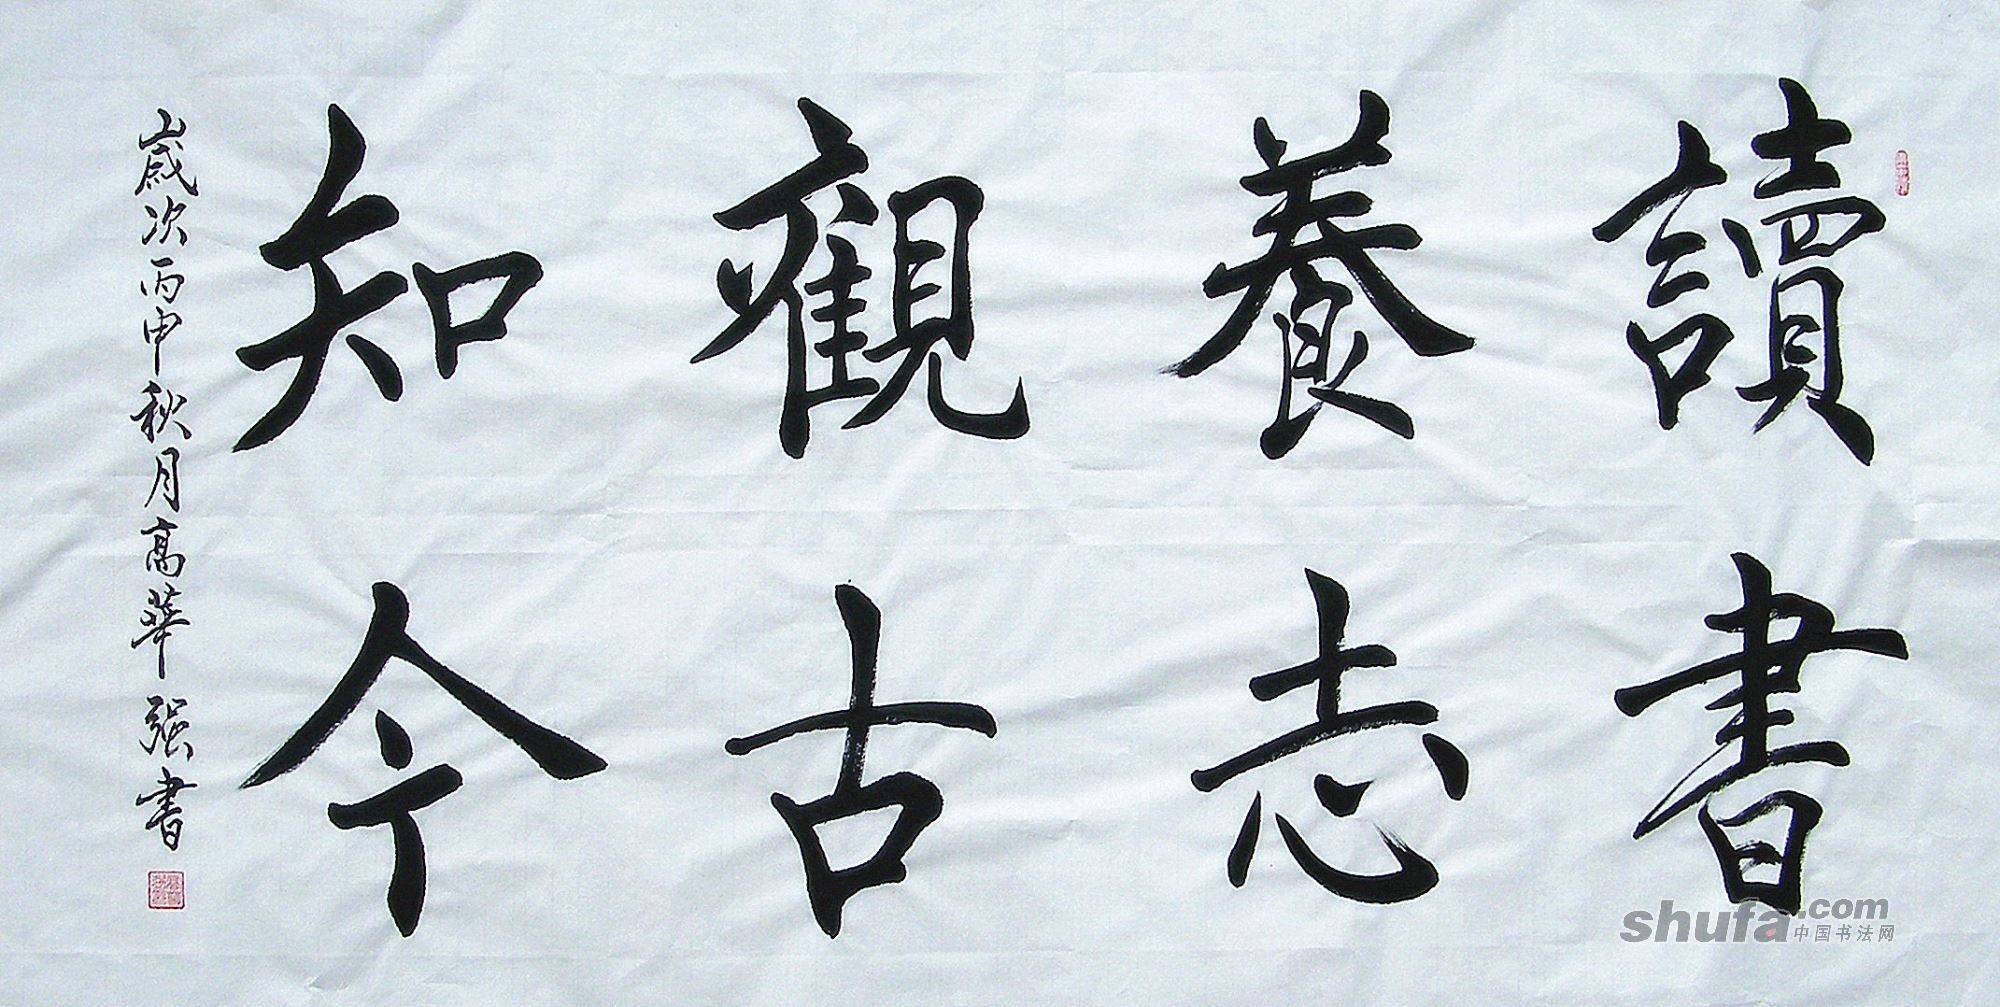 讀書
養志
觀古
知今
歲次丙申秋月高華强書
shufa.com
中国书法网